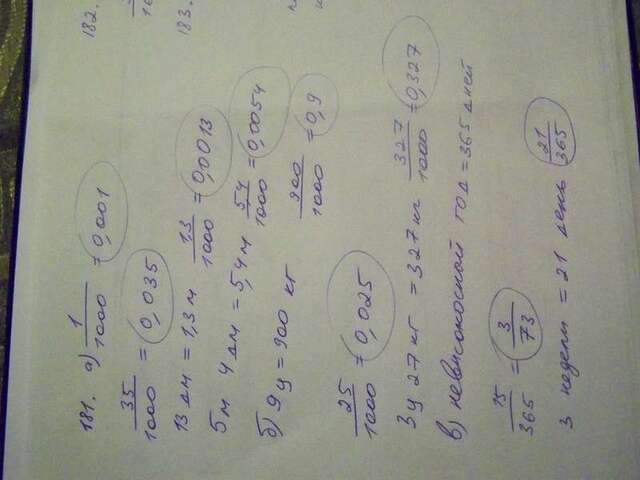 181. а) 1/1000 = 0,001
35/1000 = 0,035
13 дм = 1,3 м 1,3/1000 = 0,0013
5 м 4 дм = 5,4 м 5,4/1000 = 0,0054
б) 9 ц = 900 кг 900/1000 = 0,9
25/1000 = 0,025
3 ц 27 кг = 327 кг 327/1000 = 0,327
в) невисокосной год = 365 дней
15/365 = 3/73
3 недели = 21 день 21/365
182.
183.